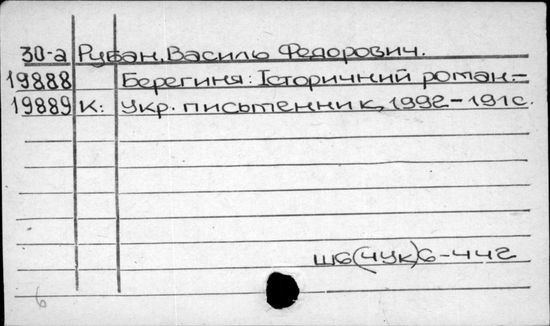 30-а Рубан, Василь Федорович.
19888 Берегиня: Історичний роман.-
19889 К: Укр. письменник, 1992-191с.
Ш6(4УК)6-442
6